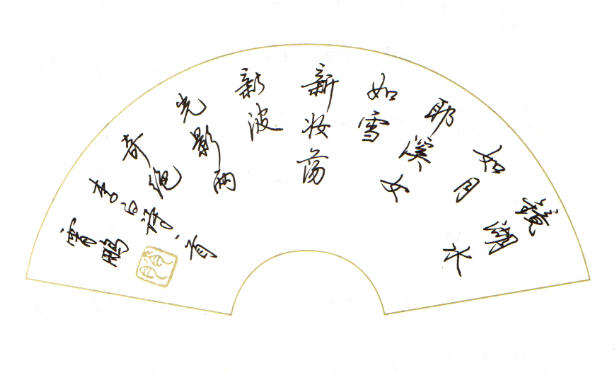 镜湖水
如月
耶溪女
如雪
新妆荡
新波
光影两
奇绝
李白诗一首
鹏